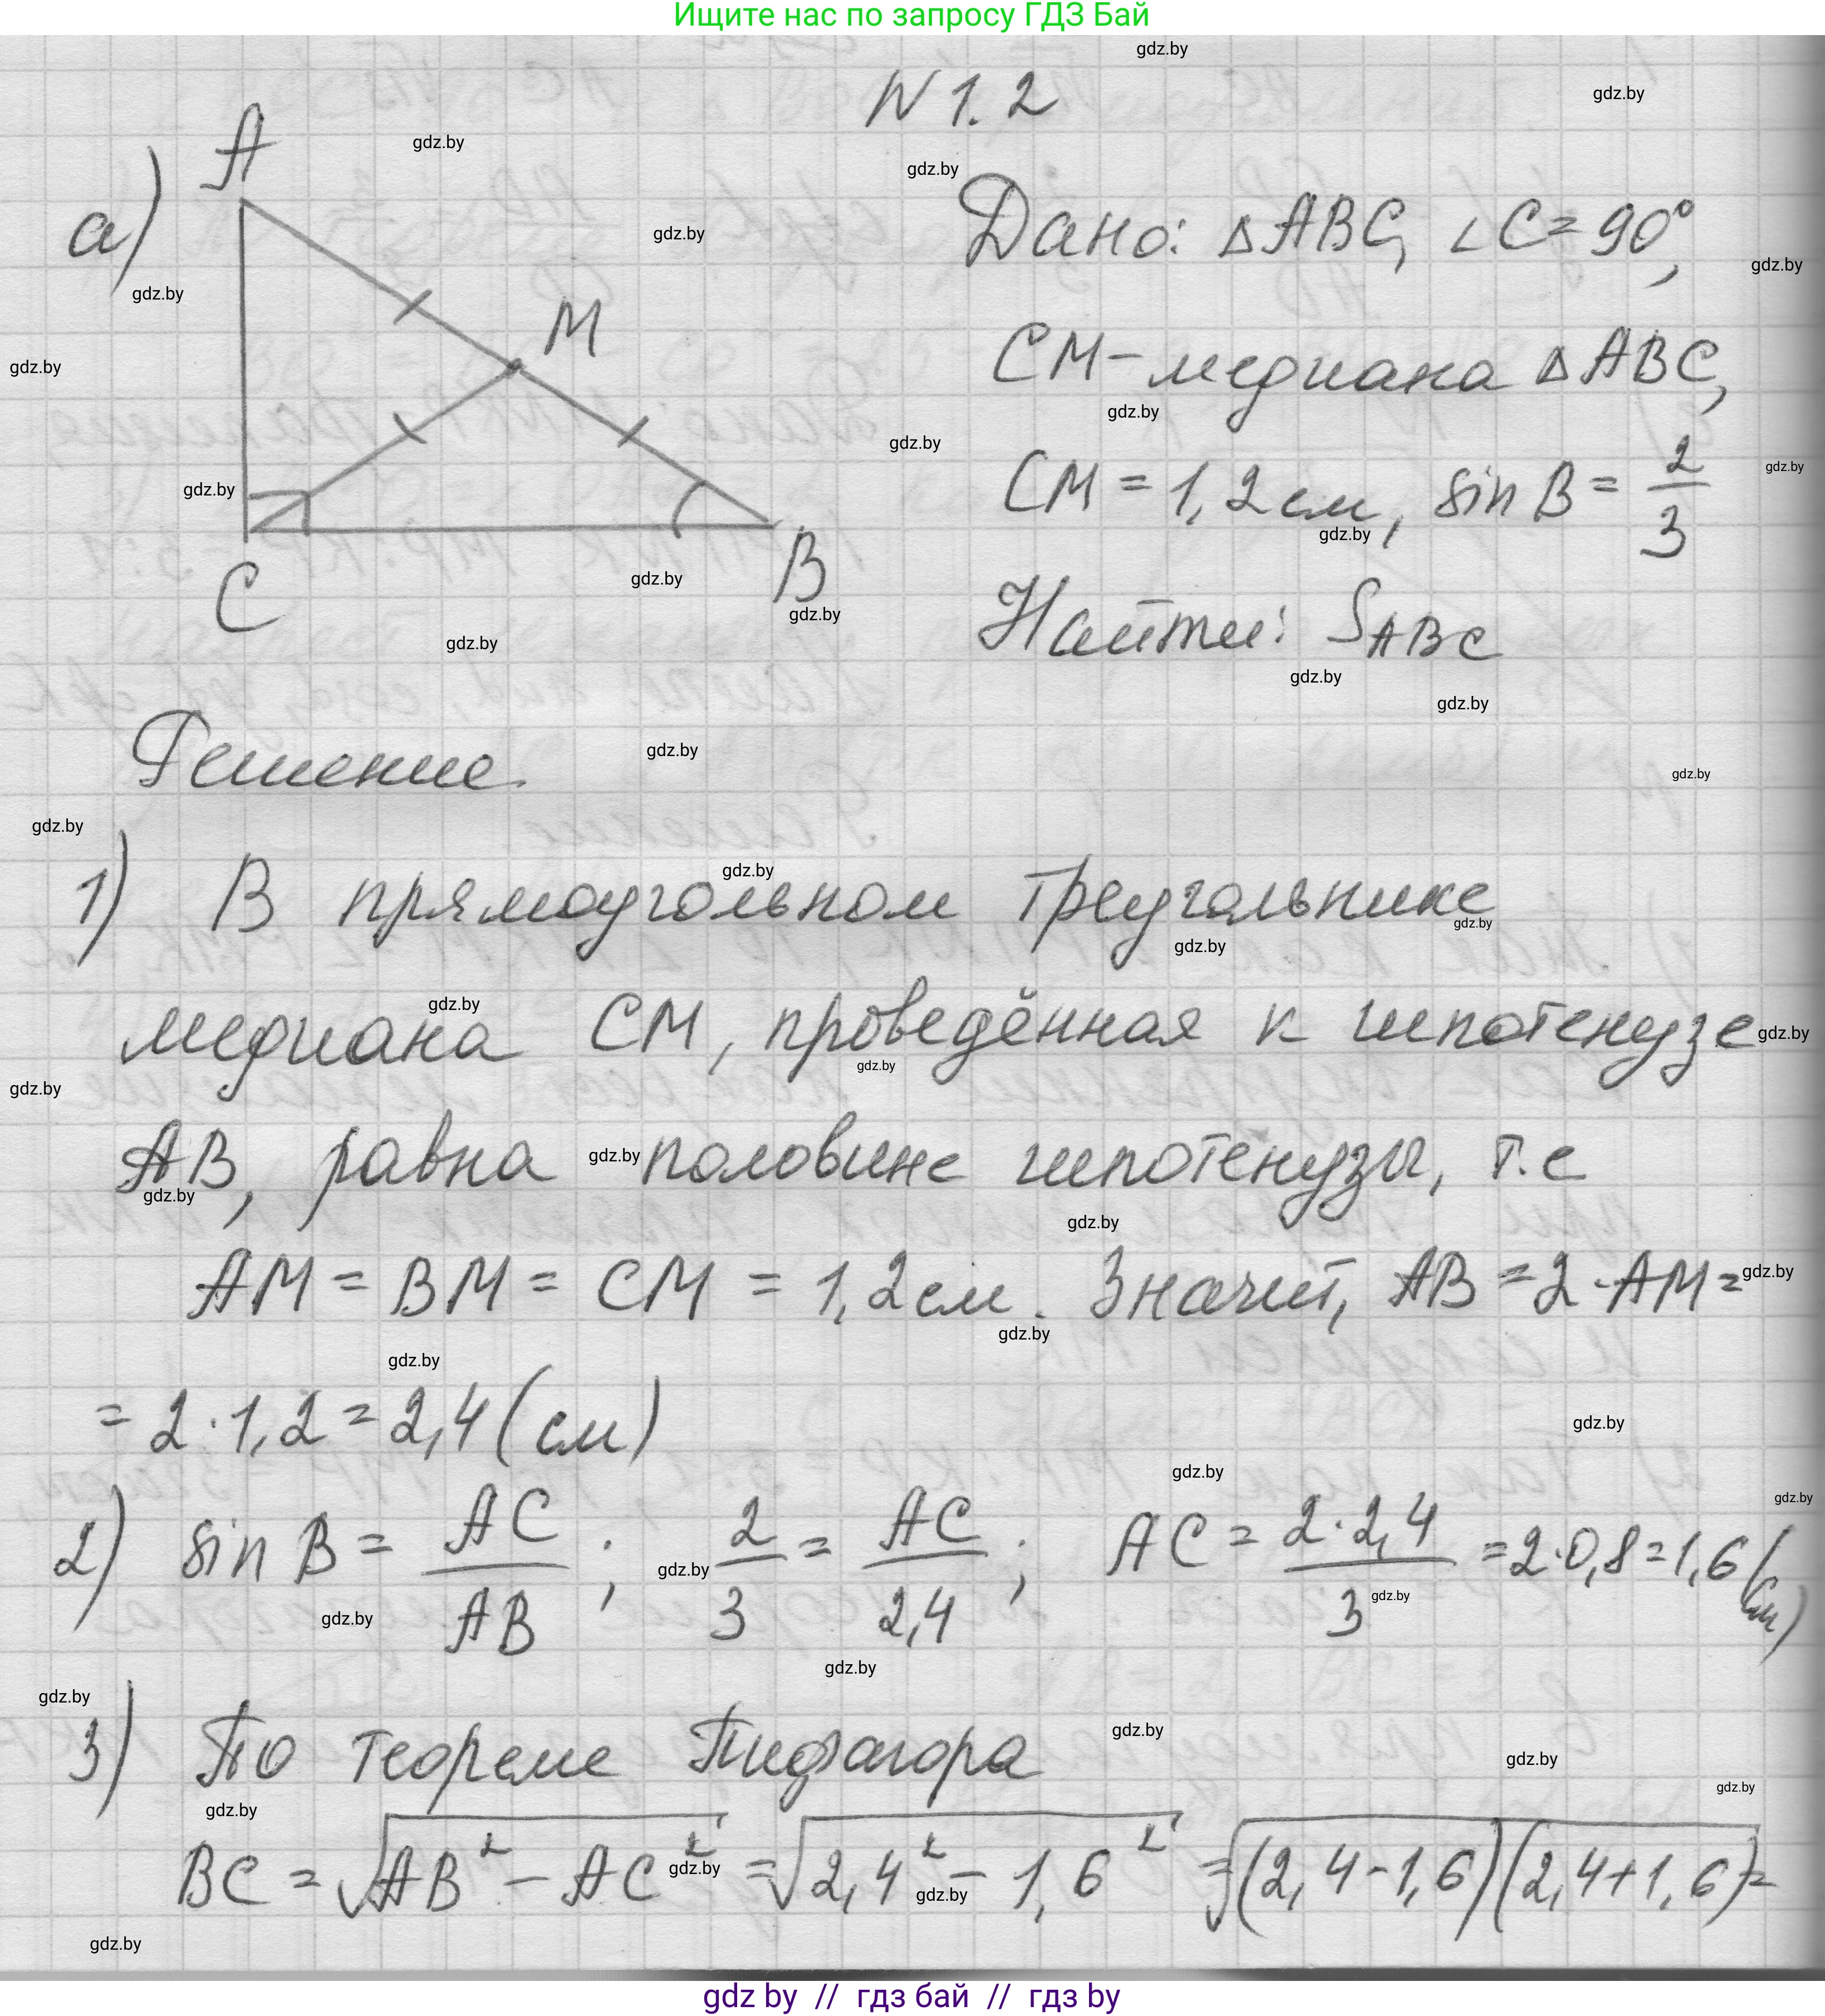 Ищите нас по запросу ГДЗ Бай
gdz.by
N 1. 2
а)
A
M
C
B
Дано: ΔABC, ∠C = 90°,
CM - медиана ΔABC,
CM = 1,2 см, sin B = 2/3
Найти: S_ABC
Решение.
1) В прямоугольном треугольнике
медиана CM, проведённая к гипотенузе
AB, равна половине гипотенузы, т.е
AM = BM = CM = 1,2 см. Значит, AB = 2·AM =
= 2·1,2 = 2,4 (см)
2) sin B = AC/AB ; 2/3 = AC/2,4 ; AC = 2·2,4/3 = 2·0,8 = 1,6 (см)
3) По теореме Пифагора
BC = √(AB² - AC²) = √(2,4² - 1,6²) = √((2,4-1,6)(2,4+1,6)) =
gdz by // гдз бай // гдз by